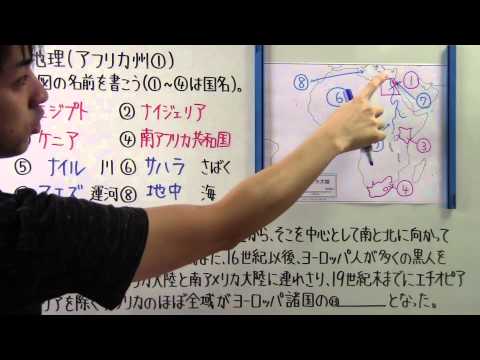 地理(アフリカ州①)
図の名前を書こう(①~④は国名)。
ジプト ②ナイジェリア
ケニア ④南アフリカ共和国
⑤ナイル川 ⑥サハラさばく
エズ運河 ⑧地中海
⑧ ① ⑥ ⑦ ③ ④
から、そこを中心として南と北に向かって
16世紀以後、ヨーロッパ人が多くの黒人を
カ大陸と南アメリカ大陸に連れさり、19世紀末までにエチオピア
リアを除くアフリカのほぼ全域がヨーロッパ諸国の⑬______となった。